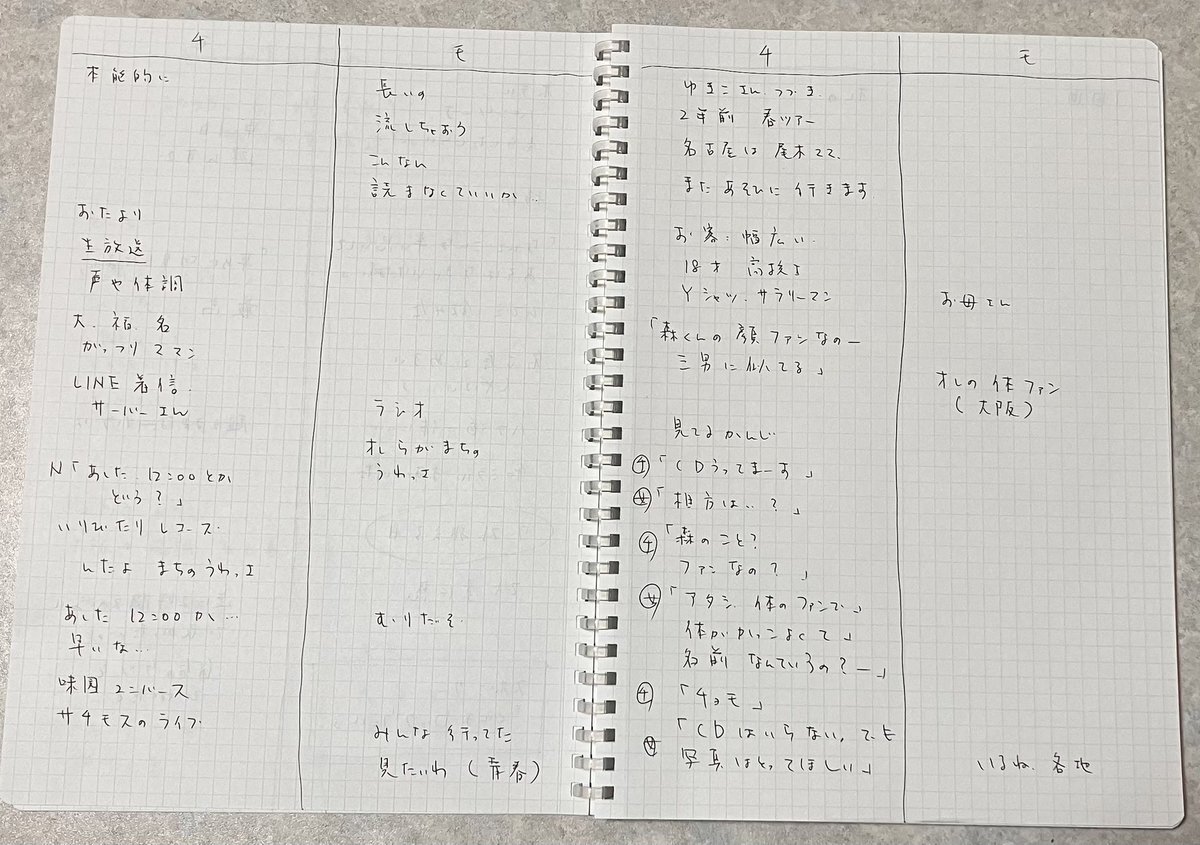 チ
本能的に
おたより
生放送
声や体調
大、福、名
がっつりママン
LINE着信
サーバーさん
N「あした 12:00とか
という?」
いりびたりレコーズ
んだよ まちのうわっさ
あした 12:00か…
早いな…
味園ユニバース
サチモスのライブ
モ
長いの
流しちゃおう
こんなん
読まなくていいか…
ラジオ
オレらがまちの
うわっさ
むりだぞ
みんな行ってた
見たいわ(青春)
チ
ゆきこさん、つづき、
2年前 春ツアー
名古屋は
またあそびに行きます
お客:幅広い
18才 高校
Yシャツ、サラリーマン
「森くんの顔ファンなのー
三男に似てる」
見てるかんじ
チ「CDうってまーす」
女「相方はい?」
チ「森のこと?
ファンなの?」
女「アタシ、体のファンで、
体がかっこよくて」
名前なんていうの?ー」
チ「チョモ」
女「CDはいらない。でも
写真はとってほしい」
モ
お母さん
オレの体ファン
(大阪)
いるね、各地